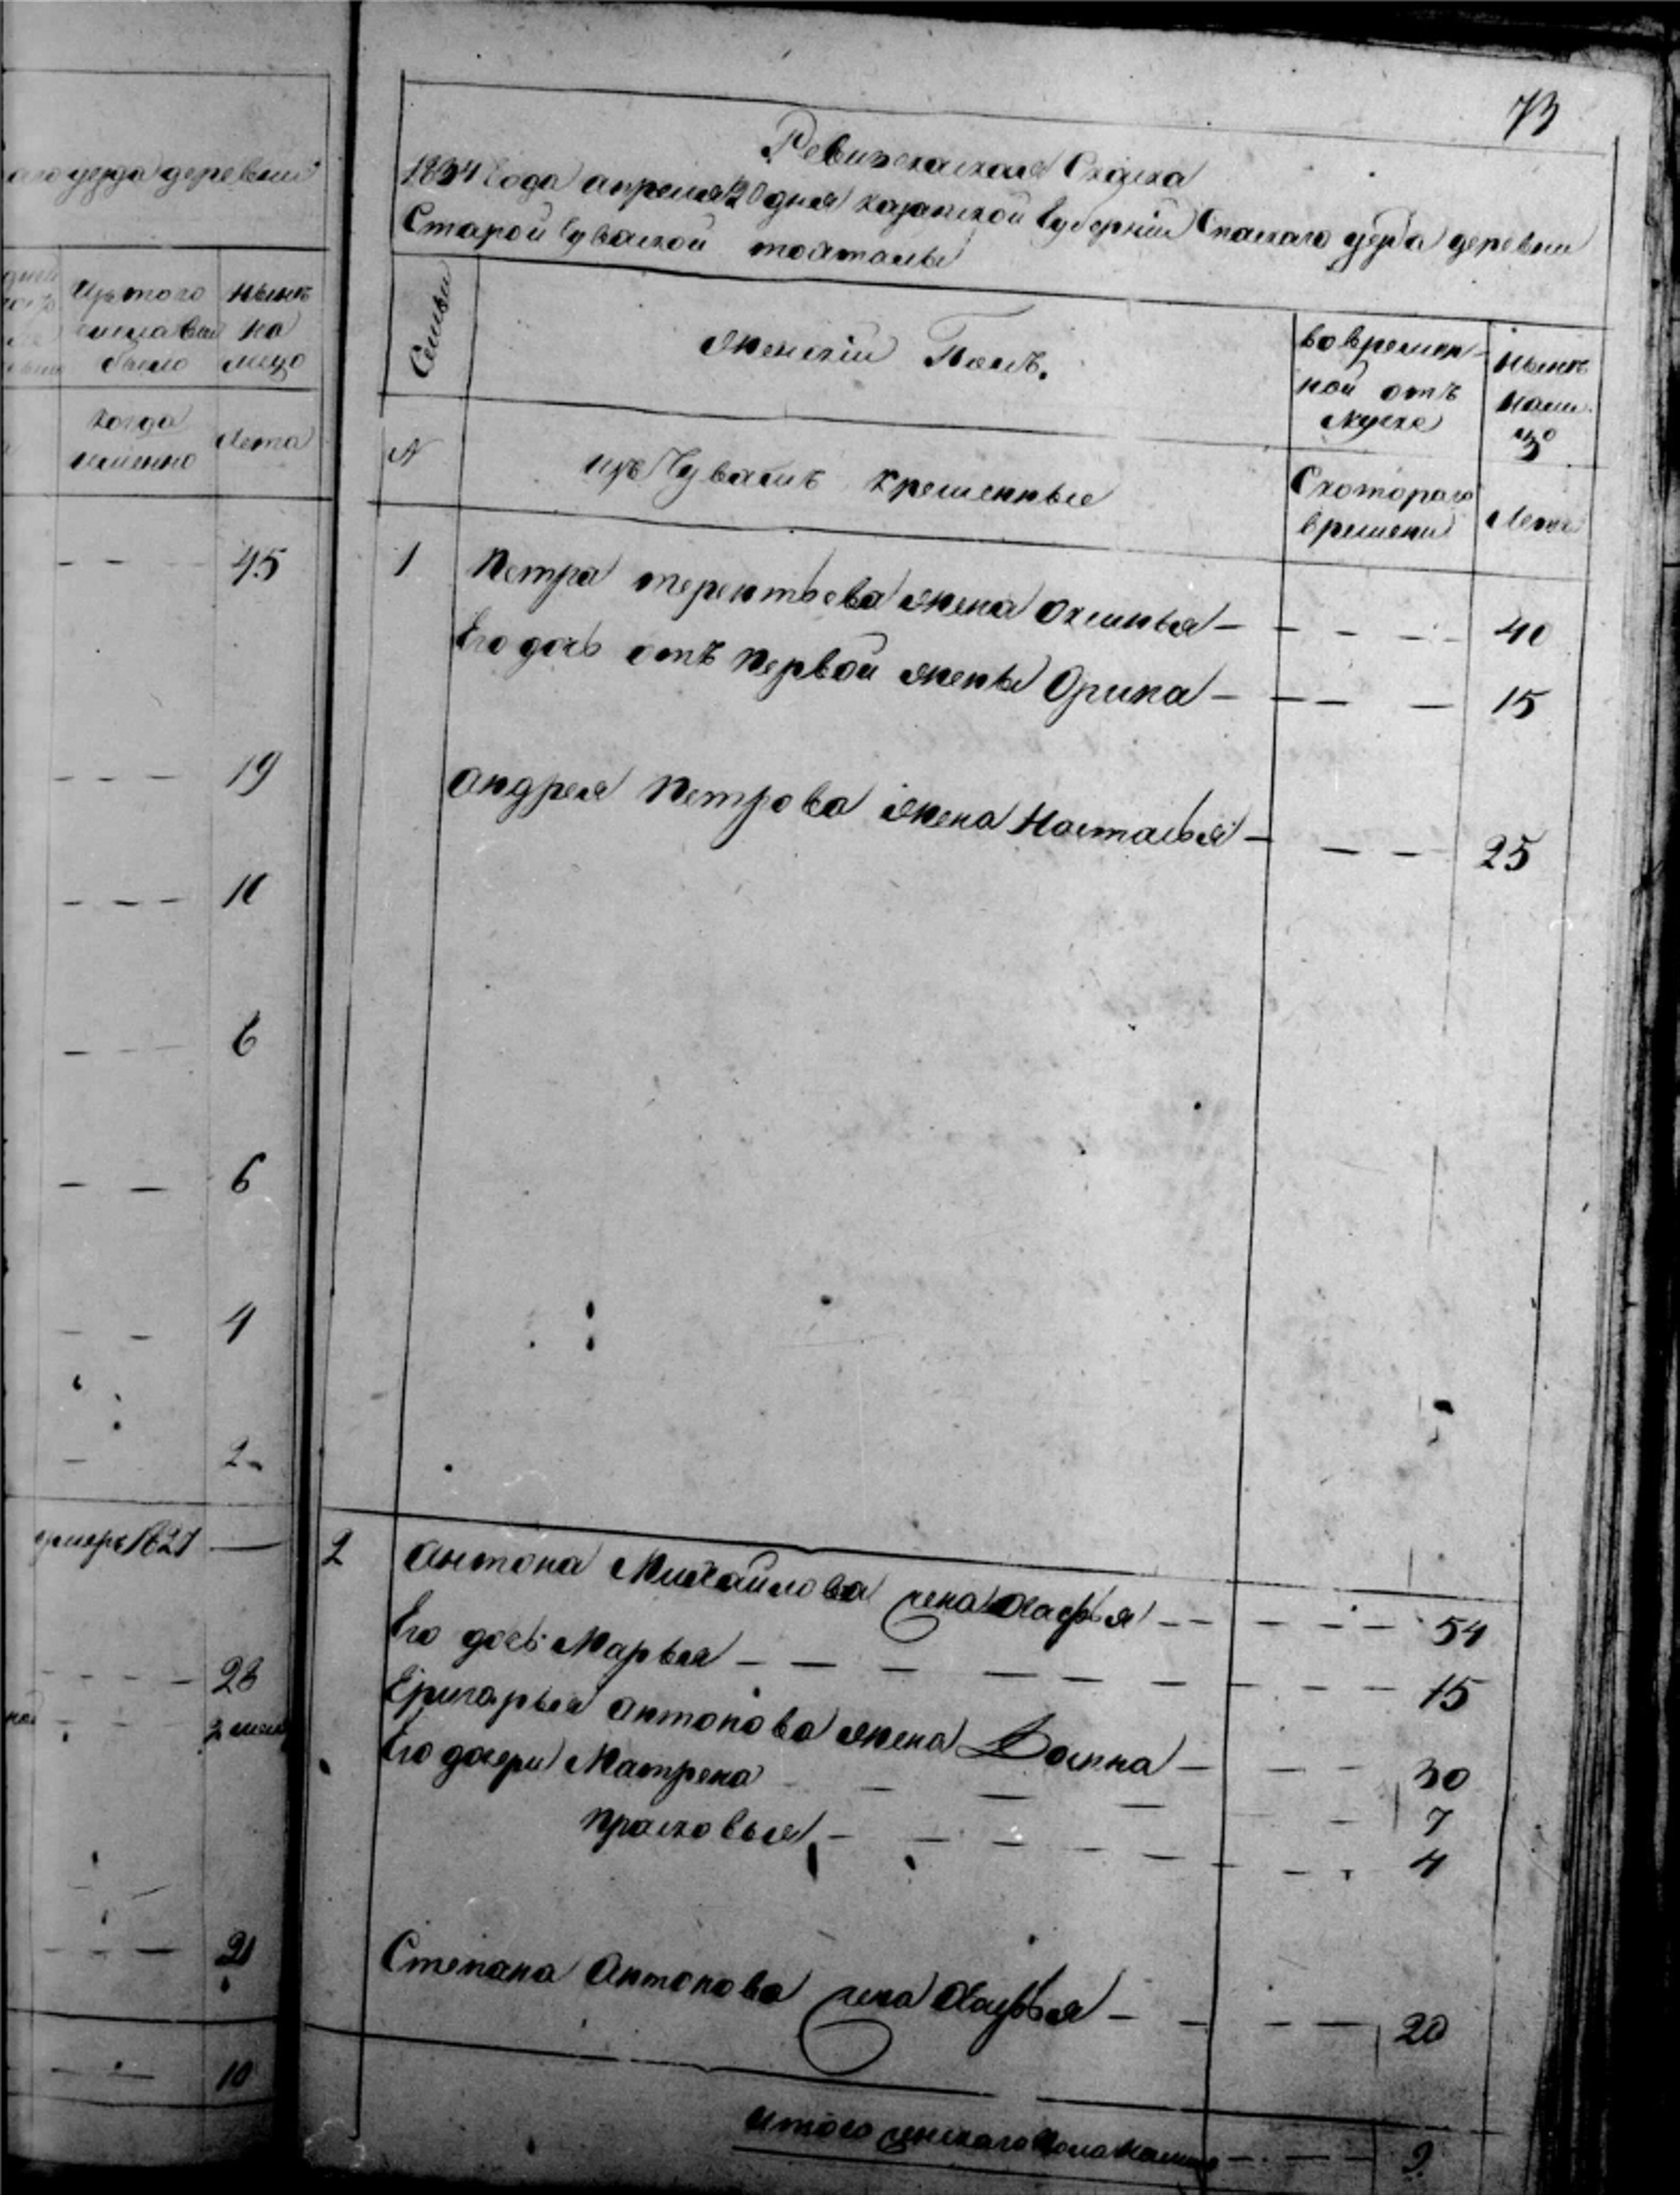 аго уезда деревни
Изъ того
числа выбыло
когда
именно
ныне
на
лицо
Лета
45
19
10
6
6
4
2
умеръ 1821
28
21
10
73
Ревизская Скаска
1834 Года апреля 20 дня казанской Губернии Спаскаго уезда деревни
Старой Чуваской
Семьи
женский Полъ.
во временной отъ
лучке
ныне
налицо
№
изъ Чувашъ крещенные
С котораго
времени
Лета
1
Петра терентьева жена Оксинья — — — — 40
Его дочь отъ первой жены Орина — — — — 15
андрея Петрова жена Настасья — — — 25
2
Антона Михайлова жена — — — — 54
Его дочь Марья — — — — 15
Григорья антонова жена — — — 30
Его дочери Матрена — — — 7
прасковья — — — 4
Степана Антонова жена — — — 20
Итого женскаго пола налицо — — — 9